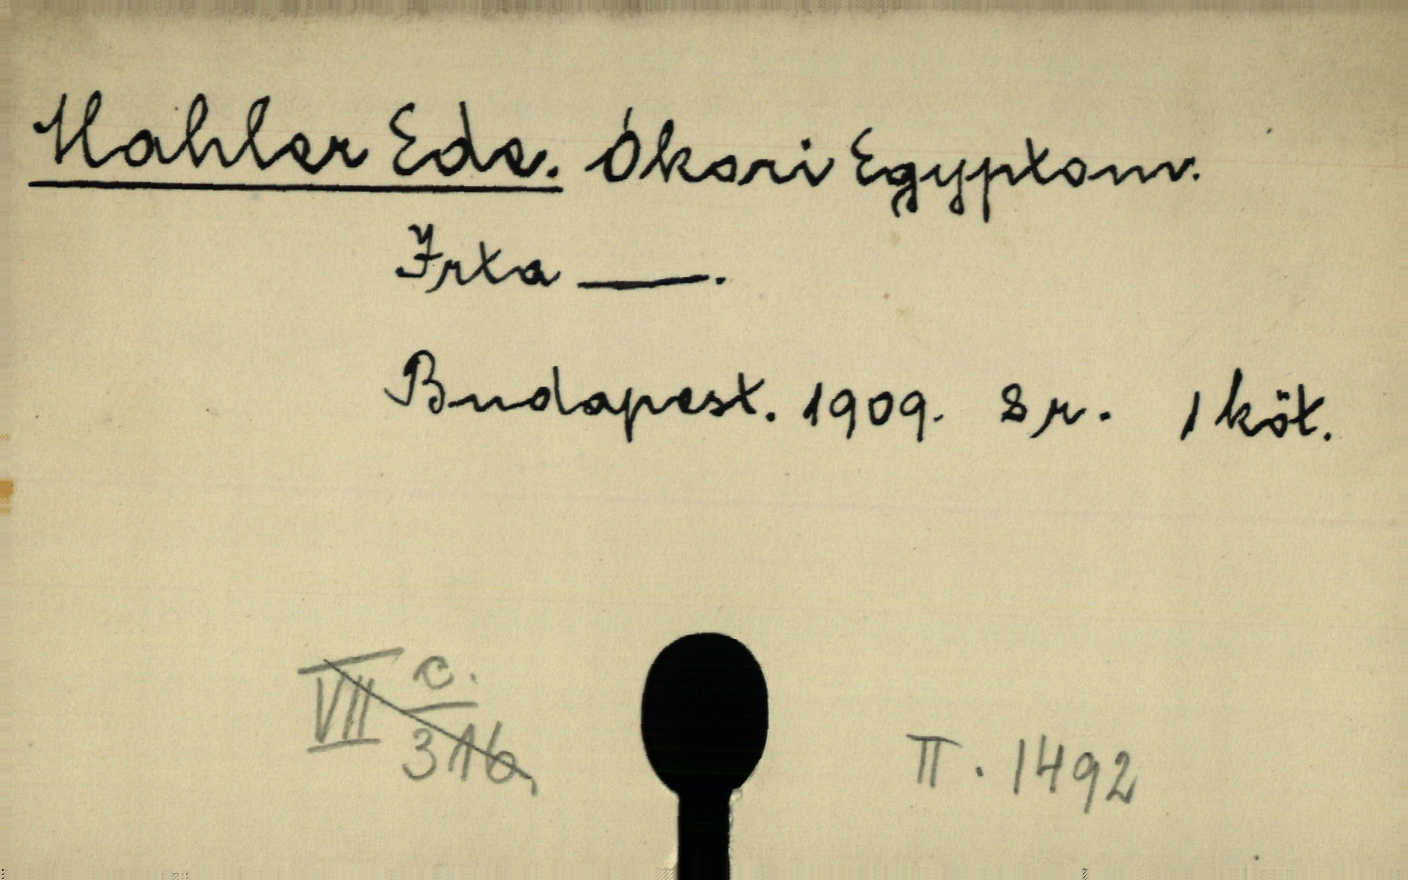 Mahler Ede. Ókori Egyptom.
Irta ——.
Budapest. 1909. 8r. 1 köt.
VII c./316
II. 1492